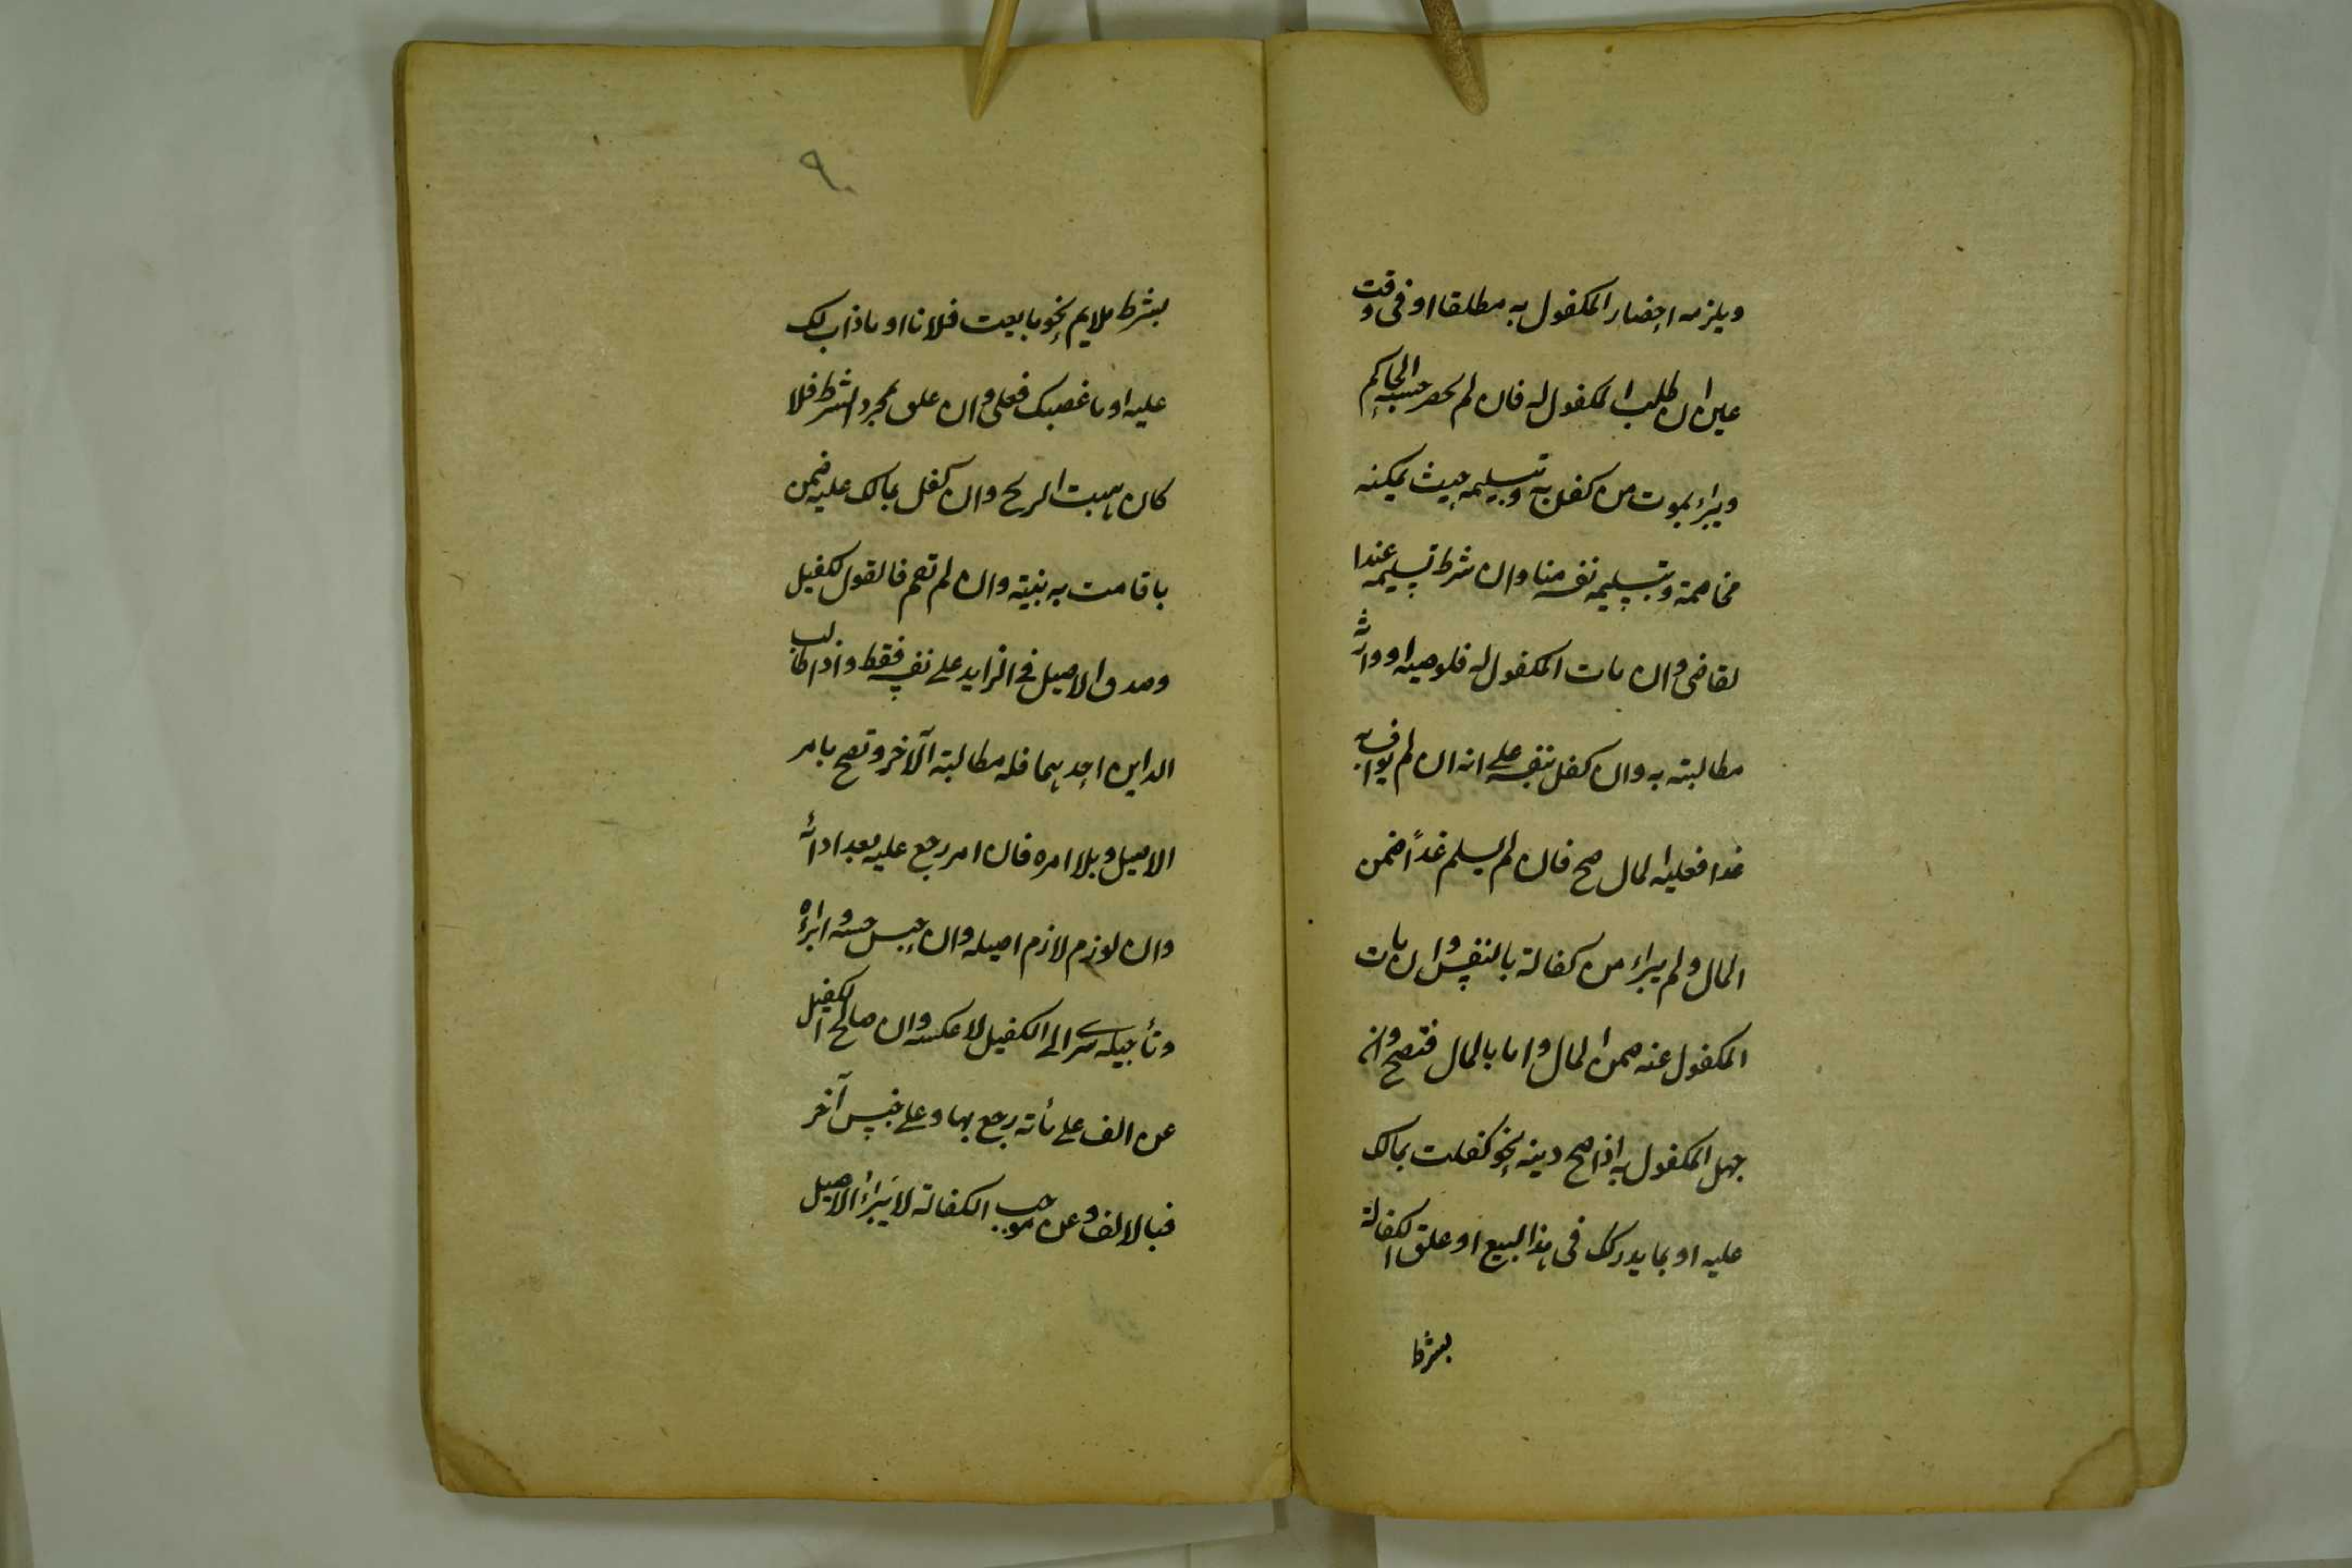 ويلزمه احضار المكفول به مطلقا او فى وقت
عين ان طلب المكفول له فان لم يحضر حبسه الحاكم
ويبراء بموت من كفل به وتسليمه حيث يمكنه
مخاصمة وبتسليمه نفسه هنا وان شرط تسليمه عند ا
لقاضى وان مات المكفول له فلوصيه او وارثه
مطالبته به وان كفل بنفسه على انه ان لم يواف به
غدا فعليه المال صح فان لم يسلم غدًا ضمن
المال ولم يبراء من كفالة بالنفس وان مات
المكفول عنه ضمن المال واما بالمال فتصح وان
جهل المكفول به اذا صح دينه نحو كفلت بمالك
عليه او بما يدرك فى هذا البيع او علق الكفالة
بشرط
٩٠
بشرط ملايم نحو ما بايعت فلانا او ما ذاب لك
عليه او ما غصبك فعلى وان علق بمجرد الشرط فلا
كان هبت الريح وان كفل بمالك عليه ضمن
ما قامت به بنية وان لم تقم فالقول للكفيل
وصدق الاصيل فى الزايد على نفسه فقط واذا طالب
الداين احدهما فله مطالبة الآخر وتصح بامر
الاصيل وبلا امره فان امر رجع عليه بعد ادائه
وان لوزم لازم اصيله وان حبس حبسه وابراؤه
وتأجيله سرى الى الكفيل لا عكسه وان صالح الكفيل
عن الف على مأته رجع بها وعلى جنس آخر
فبالالف وعن موجب الكفالة لا يبراء الاصيل